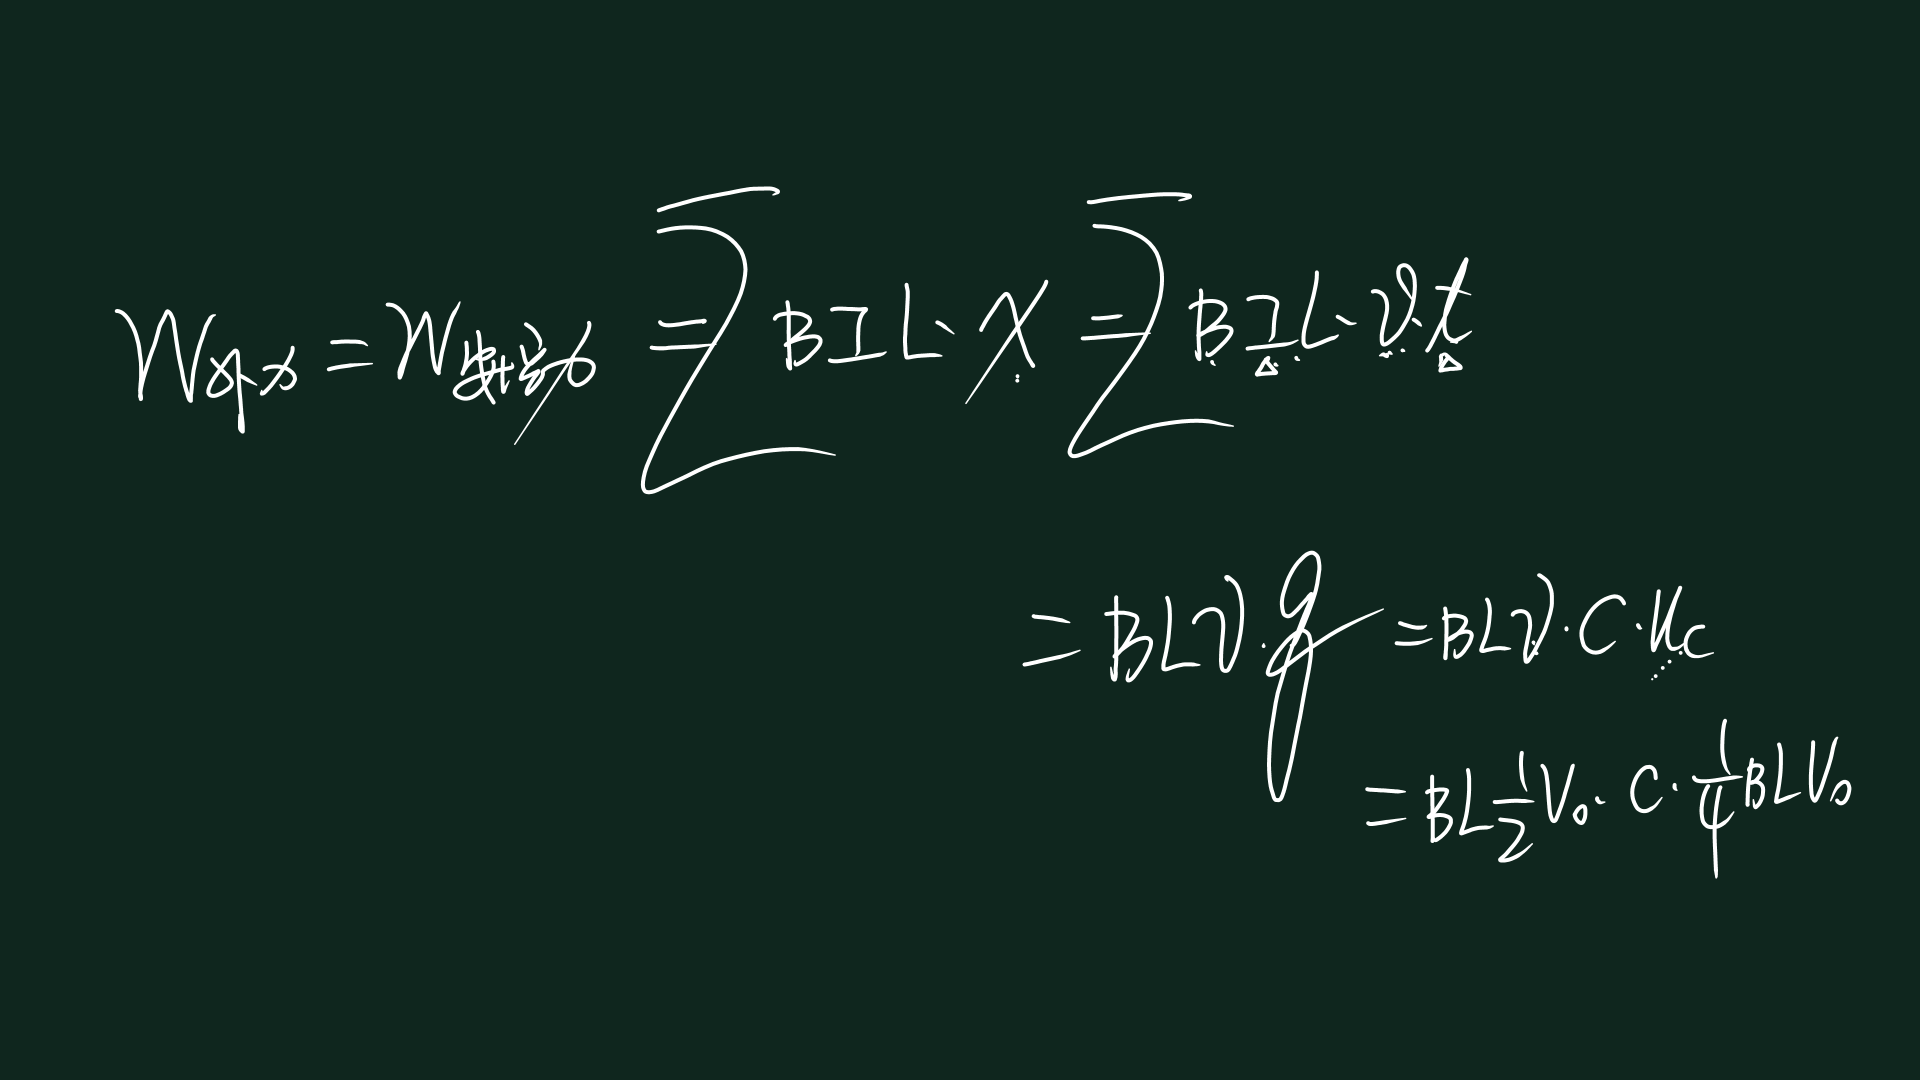 W外力=W安培力=∑BIL·x=∑BIL·v·t
=BLv·q=BLv·C·Uc
=BL½V₀·C·¼BLV₀